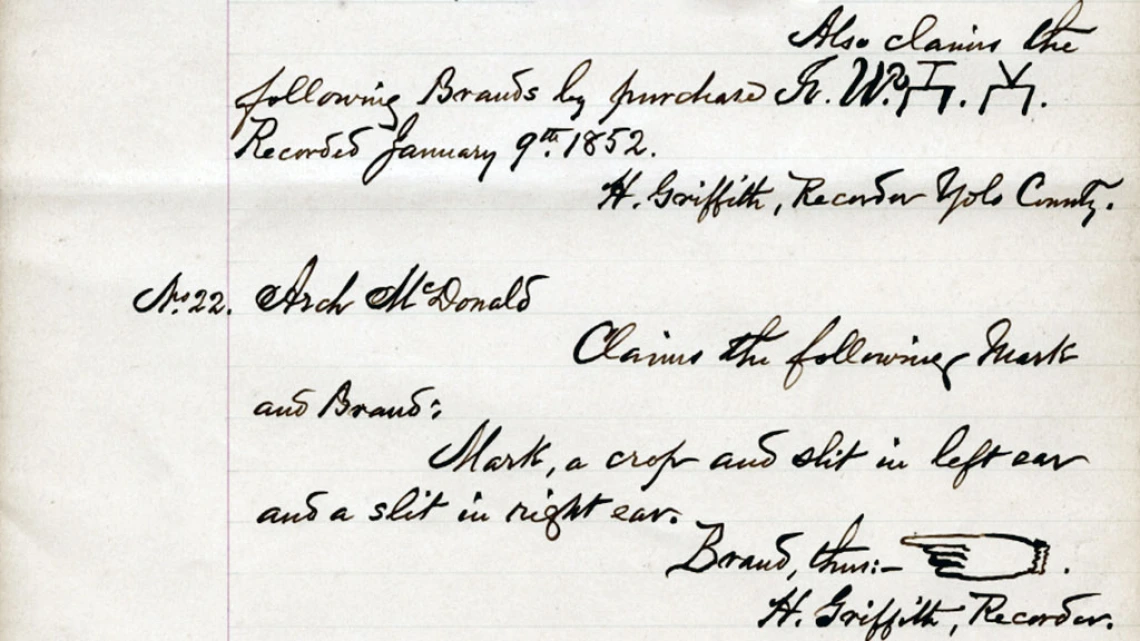 Also claims the
following Brands by purchase
Recorded January 9th. 1852.
H. Griffith, Recorder Yolo County.
No. 22. Arch McDonald
Claims the following Mark
and Brand:
Mark, a crop and slit in left ear
and a slit in right ear.
Brand, thus:-
H. Griffith, Recorder.